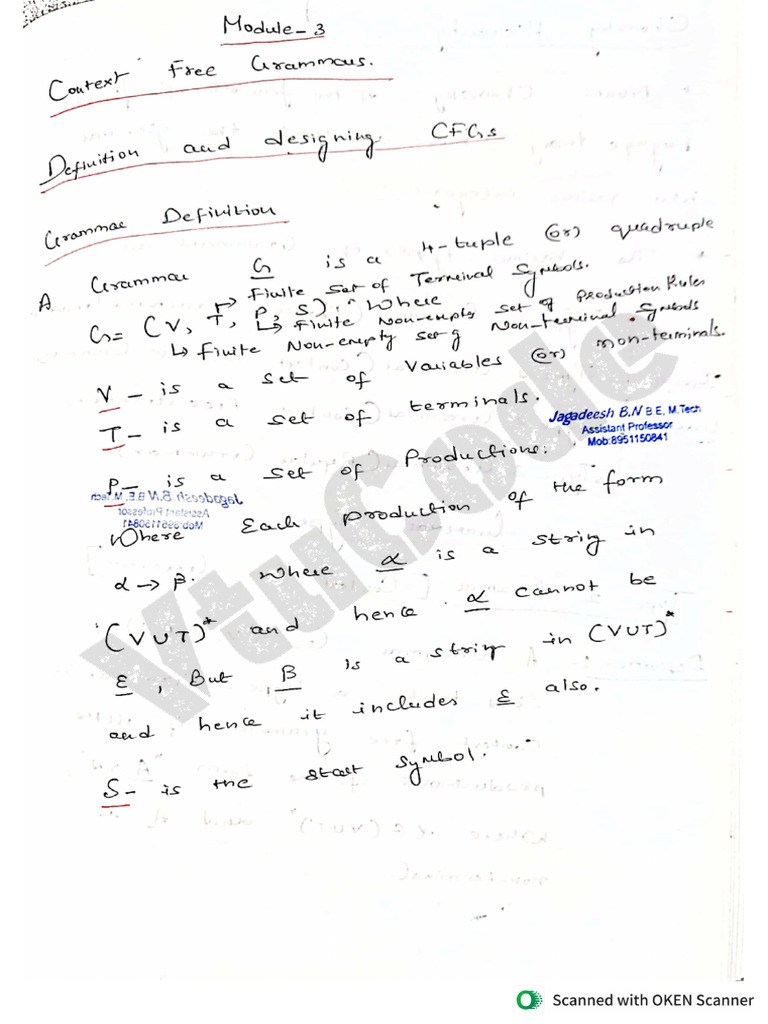 Module-3
Context Free Grammars.
Definition and designing CFGs
Grammar Definition
A Grammar G is a 4-tuple (or) quadruple
↳ Finite Set of Terminal Symbols.
G = (V, T, P, S). Where
↳ Finite Non-empty set of Production Rules
↳ Finite Non-empty set of Non-terminal Symbols
V - is a set of Variables (or) non-terminals.
T - is a set of terminals.
Jagadeesh B.N B.E, M.Tech
Assistant Professor
Mob:8951150841
P - is a set of Productions.
Jagadeesh B.N B.E, M.Tech
Assistant Professor
Mob:8951150841
Where Each production of the form
α → β. Where α is a string in
(V∪T)* and hence α cannot be
ε, But β is a string in (V∪T)*
and hence it includes ε also.
S - is the start symbol.
VtuCode
Scanned with OKEN Scanner